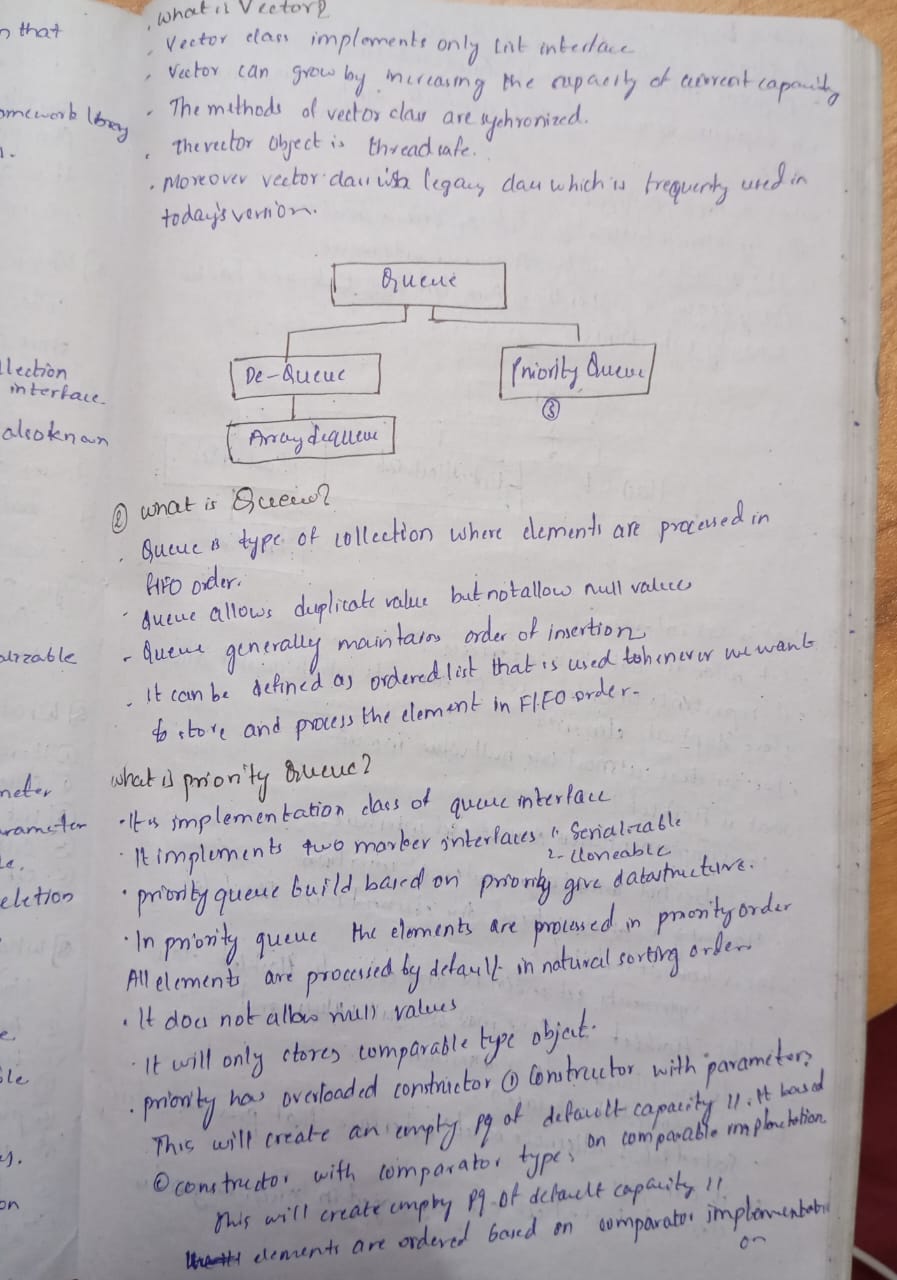 n that
omework library
llection
interface.
also known
alizable
meter
arameter
le.
eletion
e.
ble
on
. what is Vector?
. Vector class implements only list interface
. Vector can grow by increasing the capacity of current capacity
. The methods of vector class are sychronized.
. The vector object is thread safe.
. Moreover vector class is a legacy class which is frequently used in
today's version.
Queue
De-Queue
Priority Queue
③
Array dequeue
② what is Queue?
. Queue is type of collection where elements are processed in
FIFO order.
- Queue allows duplicate value but not allow null values
- Queue generally maintains order of insertion
. It can be defined as ordered list that is used whenever we want
to store and process the element in FIFO order.
what is priority Queue?
. It is implementation class of queue interface
. It implements two marker interfaces 1. Serializable
2- cloneable
. priority queue build based on priority give datastructure.
. In priority queue the elements are processed in priority order
All elements are processed by default in natural sorting order.
. It does not allow null values
. It will only stores comparable type object.
. priority has overloaded constructor ① Constructor with parameter?
This will create an empty pq of default capacity 11. It based
on comparable
② constructor with comparator type:
This will create empty pq of default capacity 11
elements are ordered based on comparator implementati
on